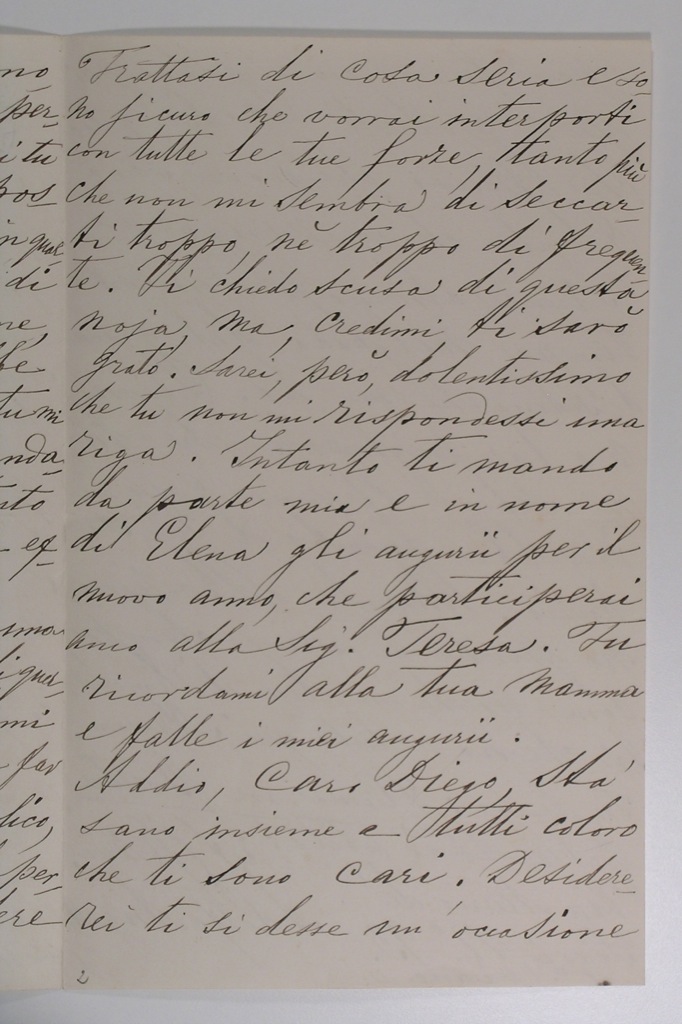 Trattasi di cosa seria e so-
no sicuro che vorrai interporti
con tutte le tue forze, tanto più
che non mi sembra di seccar-
ti troppo, nè troppo di frequen-
te. Ti chiedo scusa di questa
noja, ma, credimi ti sarò
grato. Sarei, però, dolentissimo
che tu non mi rispondessi una
riga. Intanto ti mando
da parte mia e in nome
di Elena gli augurii per il
nuovo anno, che parteciperai
anco alla Sig. Teresa. Tu
ricordami alla tua Mamma
e falle i miei augurii.
Addio, Caro Diego, Stà
sano insieme a tutti coloro
che ti sono cari. Desidere-
rei ti si desse un'occasione
2
no
per-
i tu
pos-
in qual
di
ne,
tu mi
nda-
nto
- ef-
mi
- fav
lico,
per-
ere